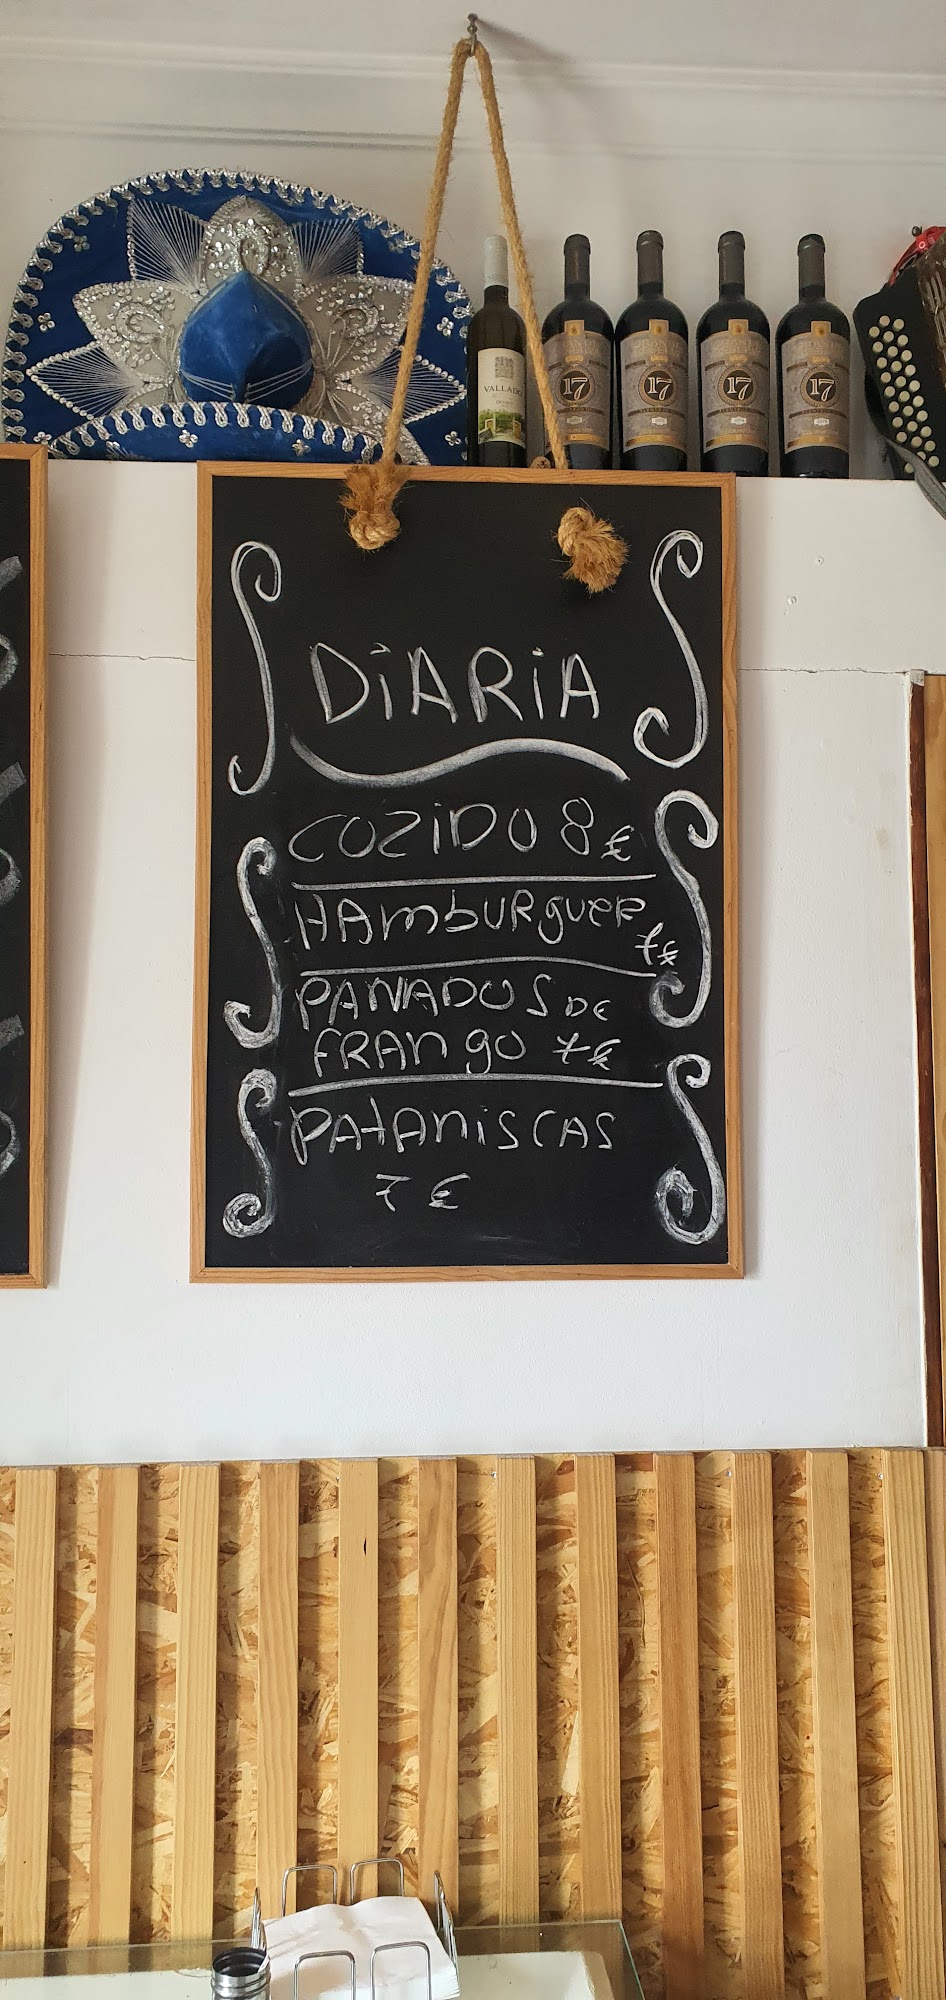 VALLADO
17
17
17
17
DiARiA
COZiDO 8 €
HAmbURguER
7€
PANADOS DE
FRANgO 7€
PAtANiSCAS
7 €